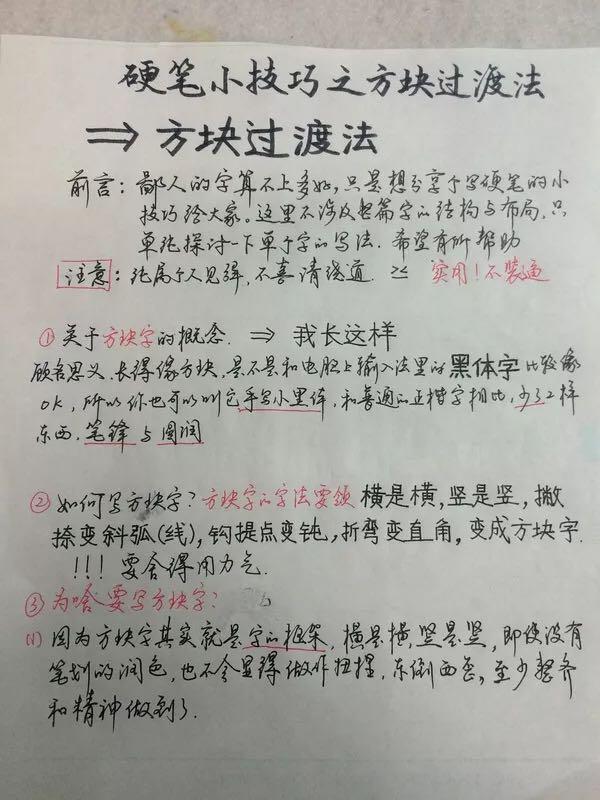 硬笔小技巧之方块过渡法
⇒ 方块过渡法
前言：鄙人的字算不上多好，只是想分享个写硬笔的小
技巧给大家。这里不涉及整篇字的结构与布局，只
单纯探讨一下单个字的写法．希望有所帮助
注意：纯属个人见解，不喜请绕道． 实用！不装逼
①关于方块字的概念．⇒ 我长这样
顾名思义，长得像方块，是不是和电脑上输入法里的黑体字比较像
OK，所以你也可以叫它手写小黑体，和普通的正楷字相比，少了2样
东西．笔锋与圆润
②如何写方块字？方块字的字法要领 横是横，竖是竖，撇
捺变斜弧(线)，钩提点变钝，折弯变直角，变成方块字．
!!! 要舍得用力气．
③为啥要写方块字？
(1) 因为方块字其实就是字的框架，横是横，竖是竖，即使没有
笔划的润色，也不会显得做作扭捏，东倒西歪，至少整齐
和精神做到了．